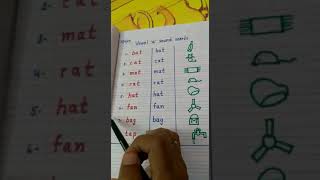 cat
mat
rat
5- hat
6- fan
Vowel 'a' sound words
bat bat
cat cat
mat mat
rat rat
hat hat
fan fan
bag bag
tap